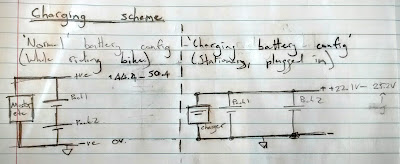 Charging scheme
'Normal' battery config
(While riding bike)
+ve +44.4 - 50.4
Motor
etc
Pack 1
Pack 2
-ve 0v.
'Charging battery config'
(Stationary, plugged in)
+ +22.1V - 25.2V
Pack 1
Pack 2
charger